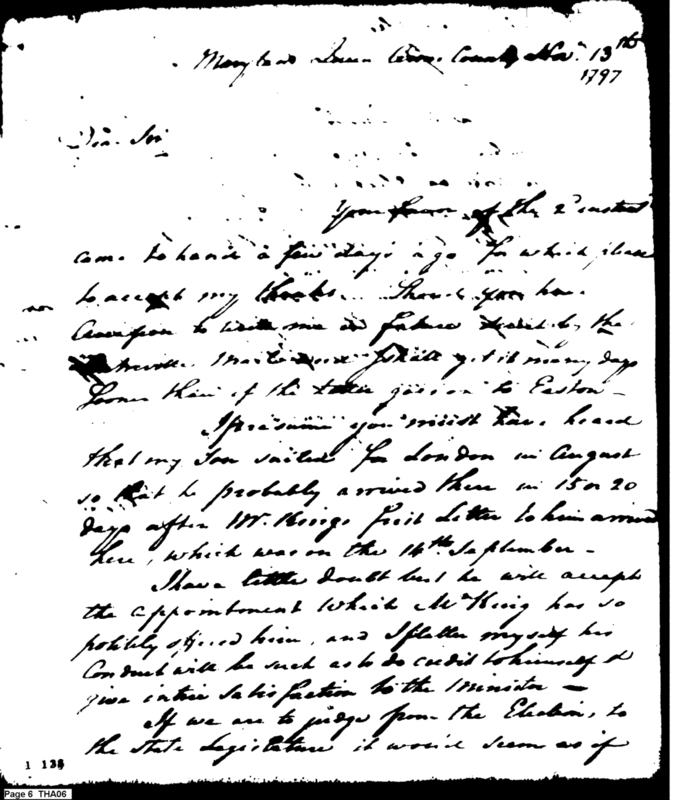 Maryland Queen Anns County Novr. 13th
1797
Dear Sir
Your favor of the 2d instant
came to hand a few days ago for which please
to accept my thanks. Should you have
occasion to write me in future direct by the
Mail and I shall get it many days
sooner than if the letter goes on to Easton -
I presume you must have heard
that my Son sailed for London in August
so that he probably arrived there in 15 or 20
days after Mr. Kings first Letter to him arrived
here, which was on the 14th. September -
I have little doubt but he will accept
the appointment which Mr King has so
politily offered him, and I flatter myself his
Conduct will be such as to do credit to himself &
give intire Satisfaction to the Minister -
If we are to judge from the Elections, to
the State Legislature it would seem as if
1 138
Page 6 THA06